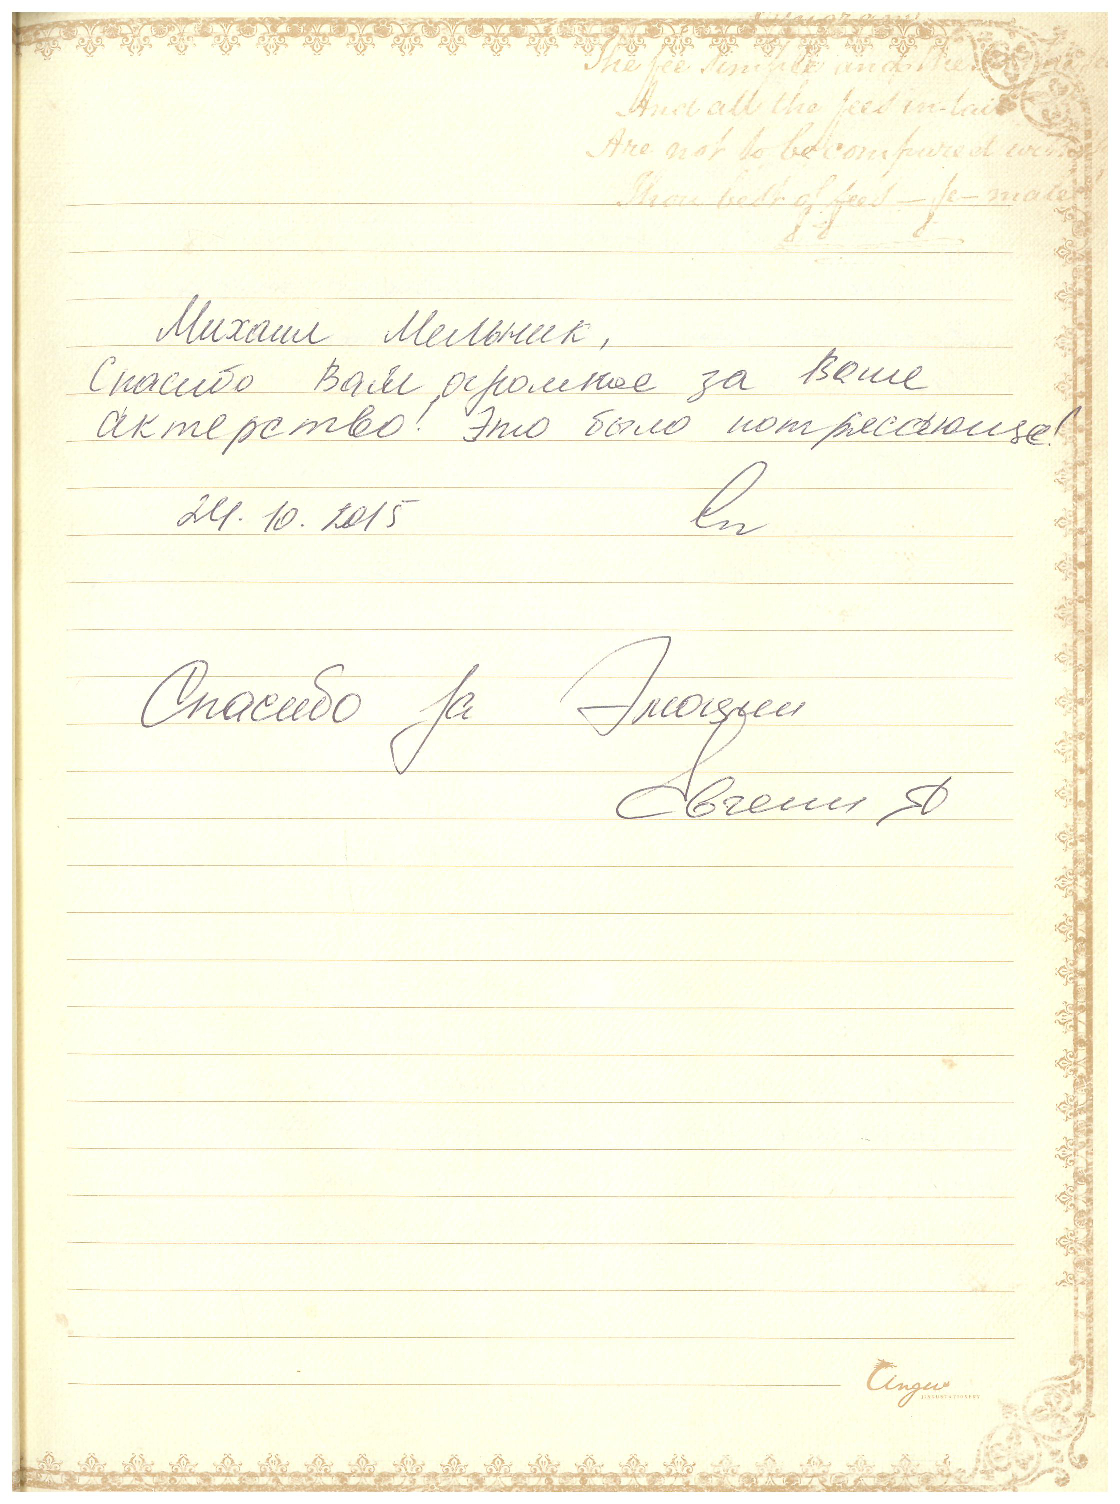 The fee simple and the
And all the fees in tail
Are not to be compared with
Thou best of fees — fe-male!
Михаил Мельник,
Спасибо Вам огромное за Ваше
актерство! Это было потрясающе!
24.10.2015
Спасибо за Эмоции
Евгения